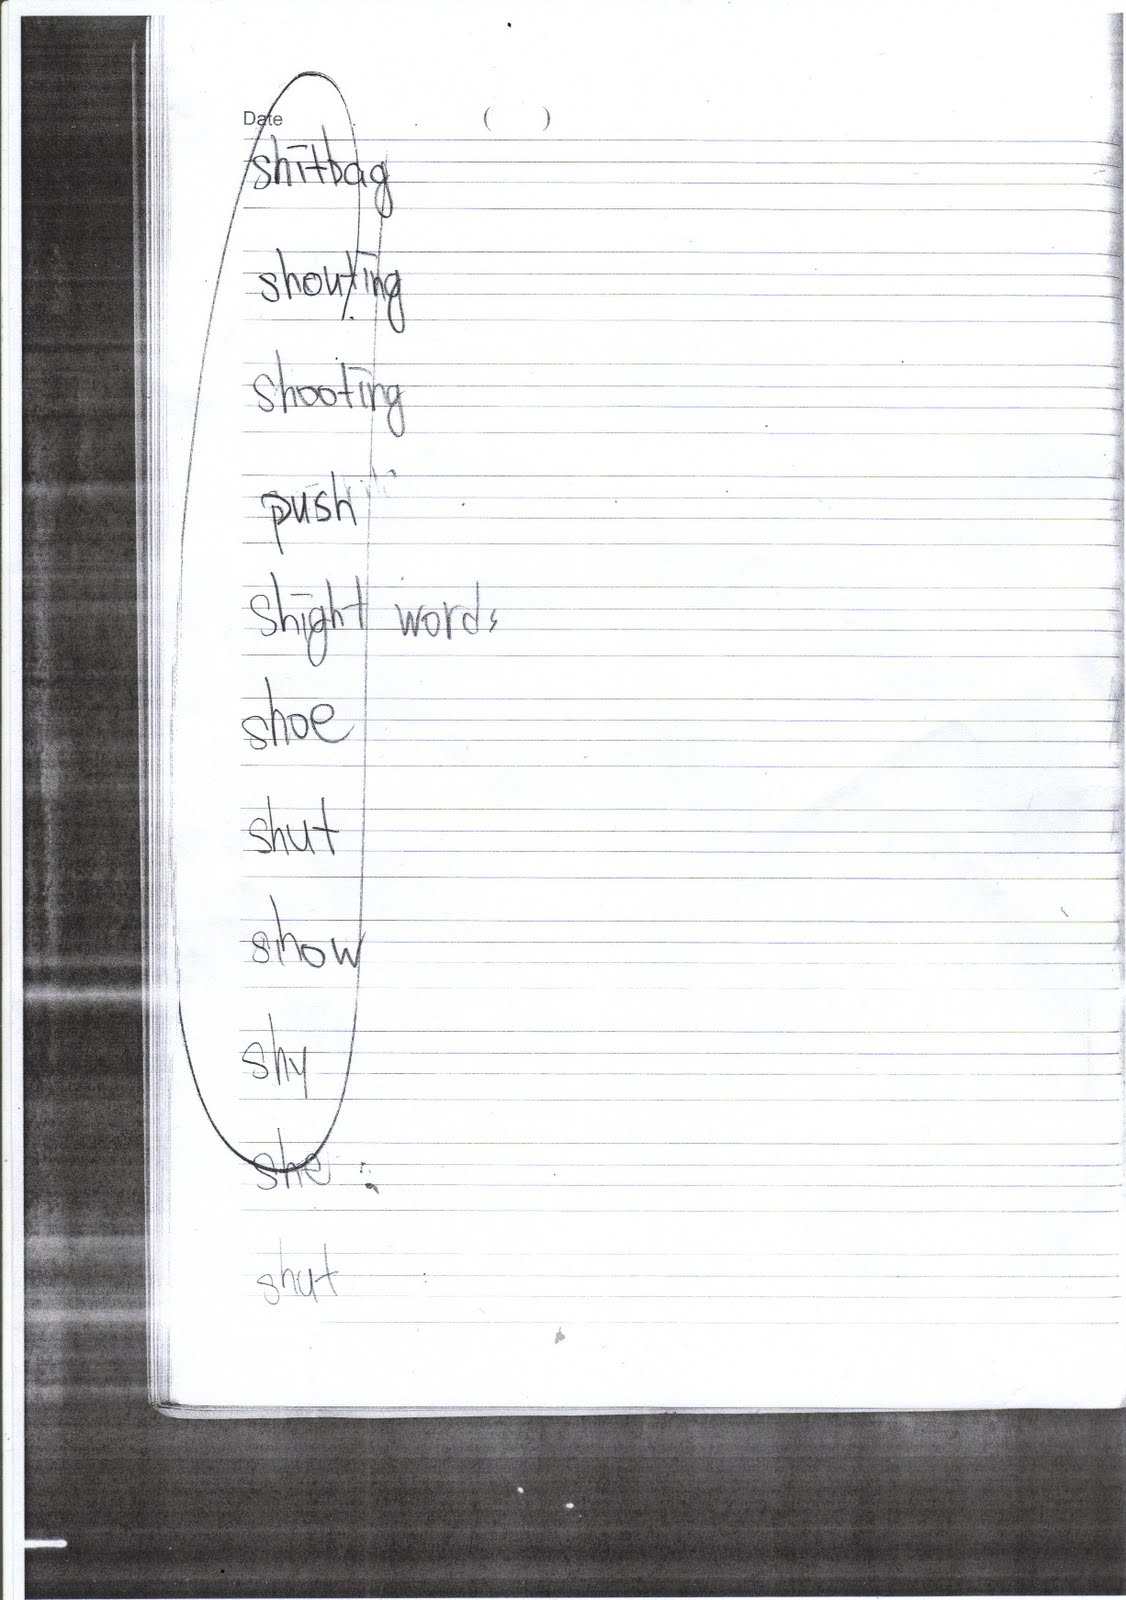 Date ( )
shitbag
shouting
shooting
push
shight words
shoe
shut
show
shy
she
shut